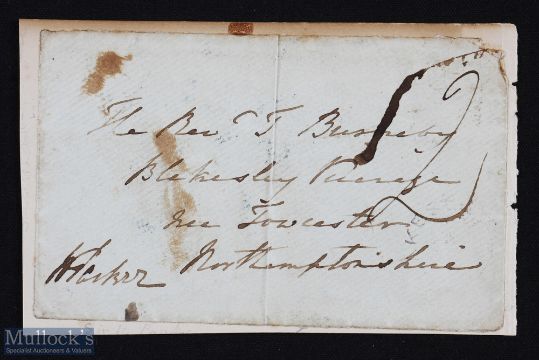 The Rev T Burnaby
Blakesley Vicarage
Nr Towcester
Northamptonshire
Mullock's
Specialist Auctioneers & Valuers